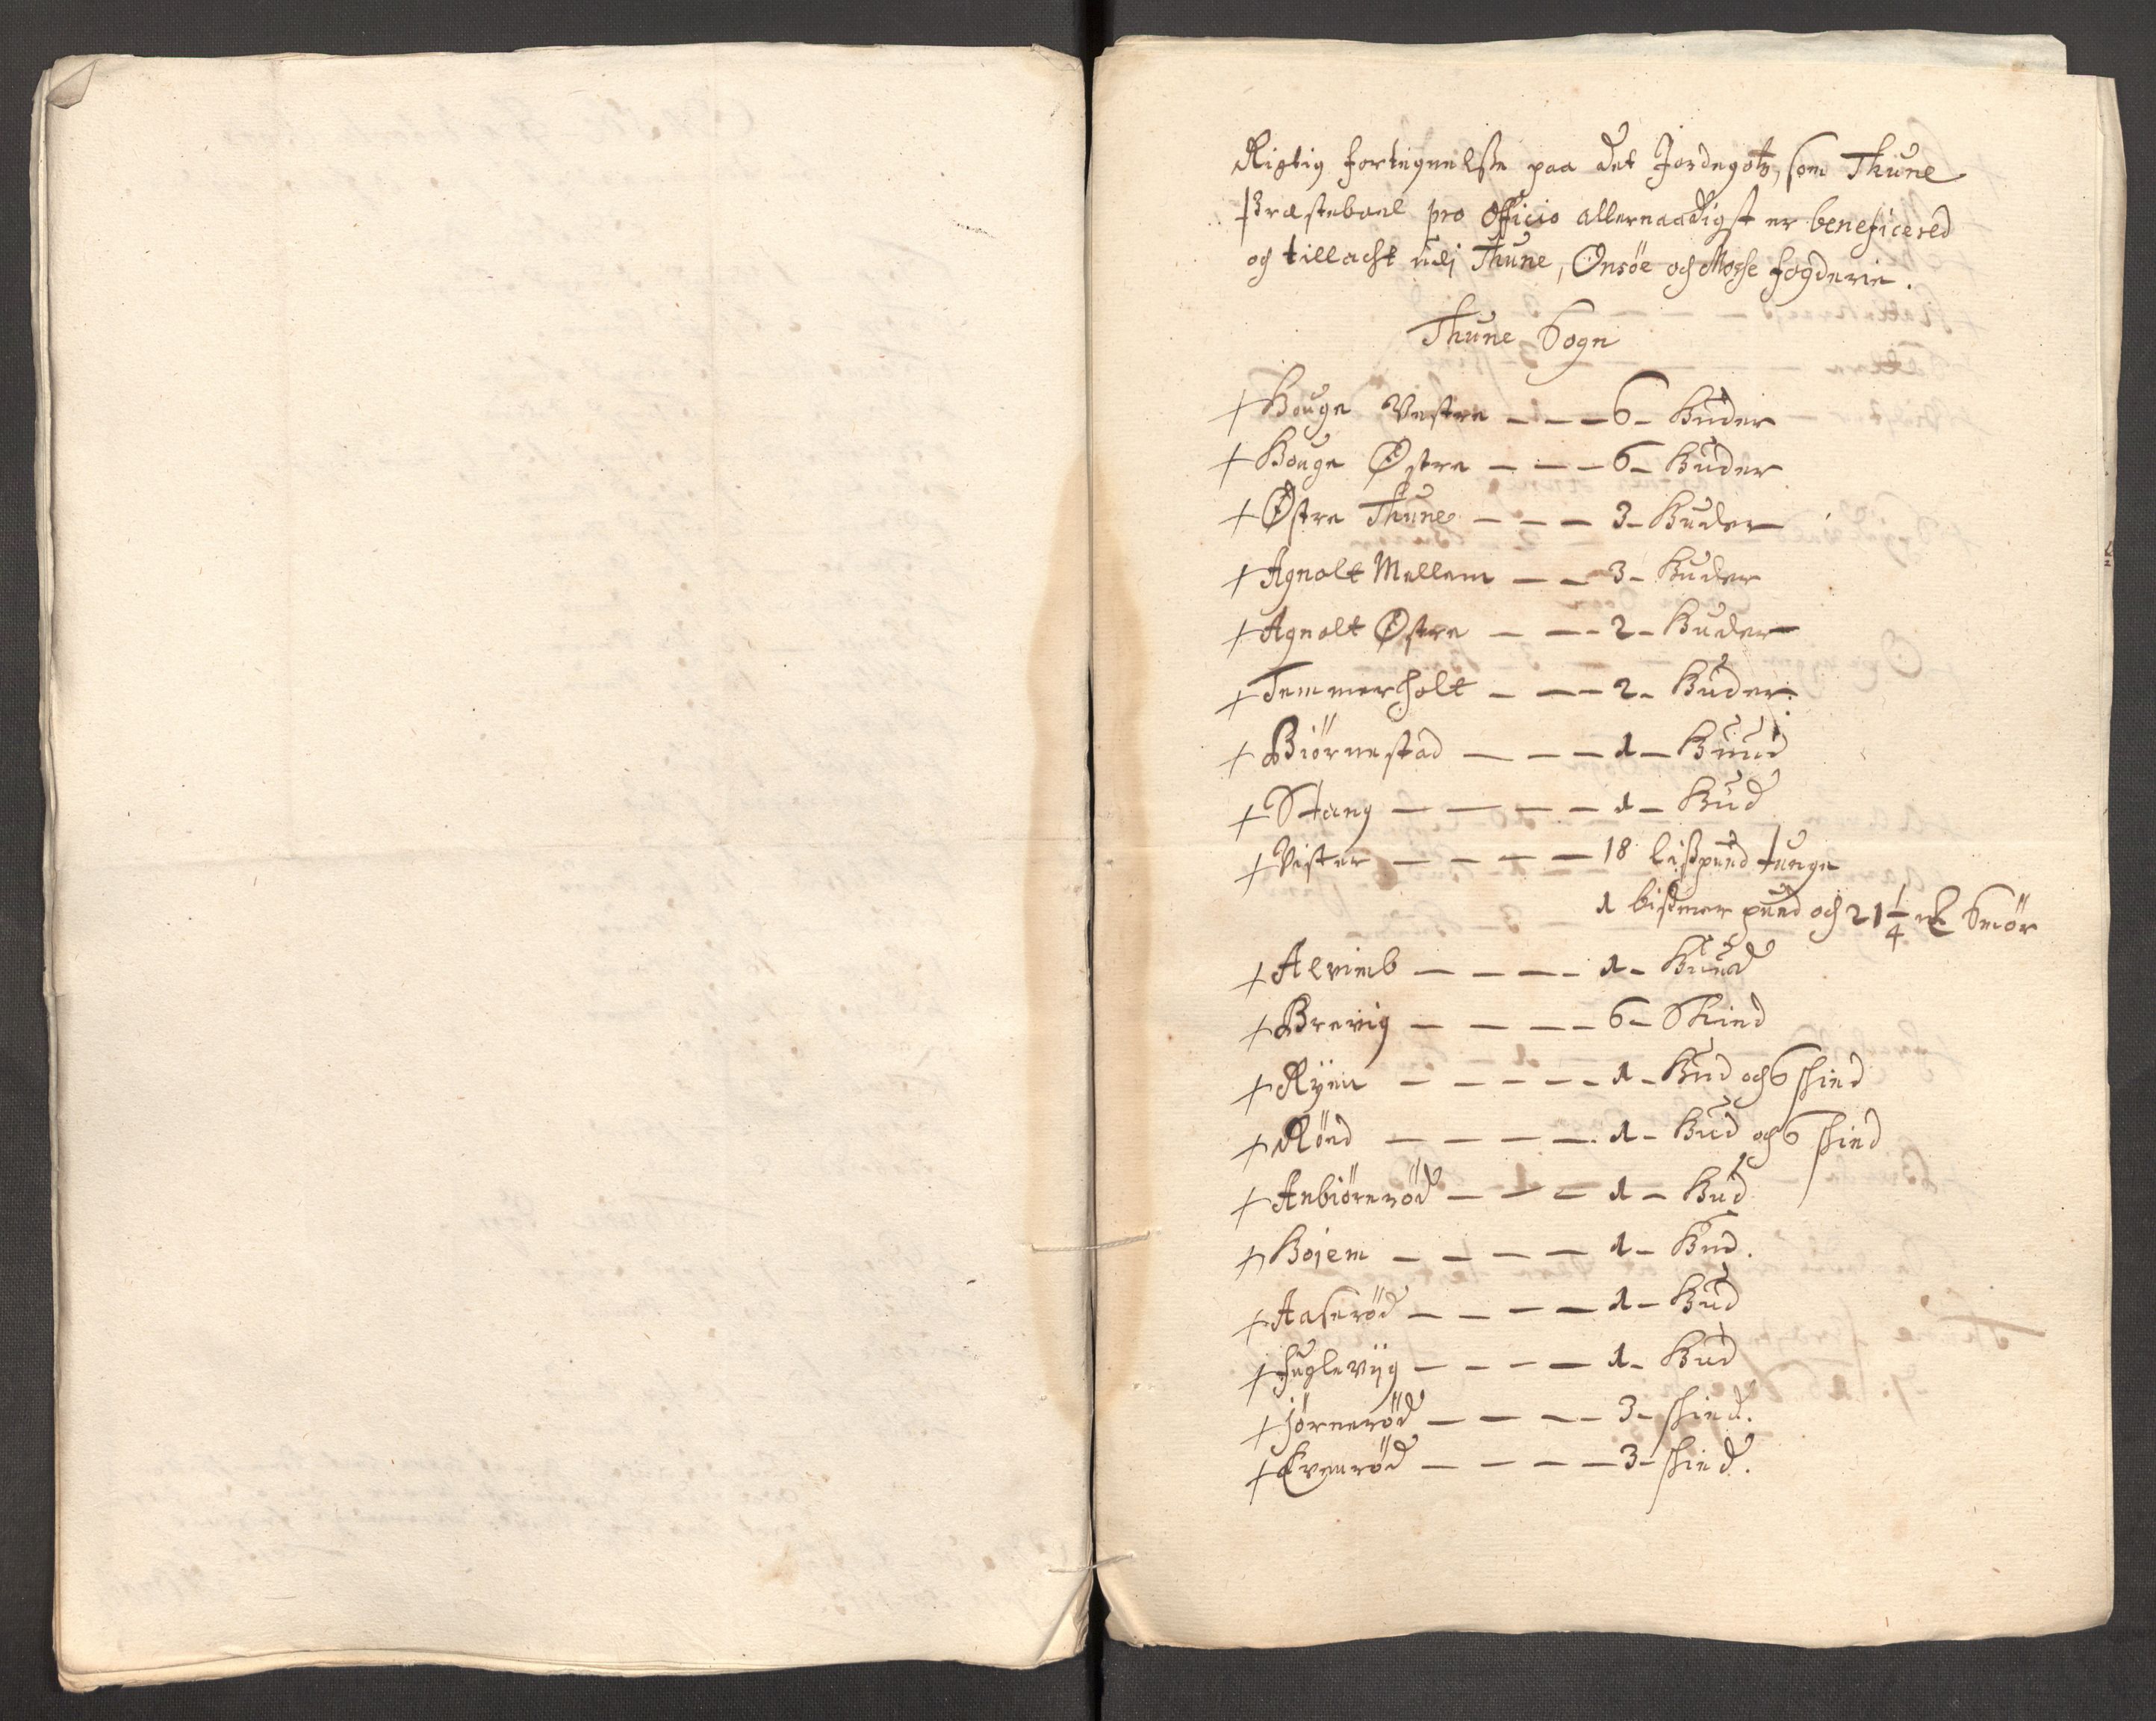 Rigtig fortegnelsse paa det Jordegotz, som Thune
Præsteboel pro Officio allernaadigst er beneficered
och tillacht udj Thune, Onsøe och Mosse fogderie.
Thune Sogn
+ Houge Vestre — — — 6 — Huder
+ Houge Østre — — — 6 — Huder
+ Østre Thune — — — 3 — Huder
+ Agnalt Mellem — — 3 — Huder
+ Agnalt Østre — — — 2 — Huder
+ Temmerholt — — — 2 — Huder
+ Biörnestad — — — 1 — Huud
+ Stang — — — — 1 — Hud
+ Vister — — — — 18 lißpund tunge
1 bißmer pund och 21 1/4 ℔ Smör
+ Alvimb — — — — 1 — Huud
+ Brevig — — — — 6 — Skind
+ Ryen — — — — — 1 — Hud och 6 skind
+ Rönd — — — — 1 — Hud och 6 skind
+ Anbiörnröd — — — 1 — Hud
+ Bojem — — — — 1 — Hud.
+ Aaseröd — — — — 1 — Hud
+ Fuglevijg — — — — 1 — Hud
+ Jörneröd — — — — 3 — skind.
+ Evenröd — — — — 3 — skind.